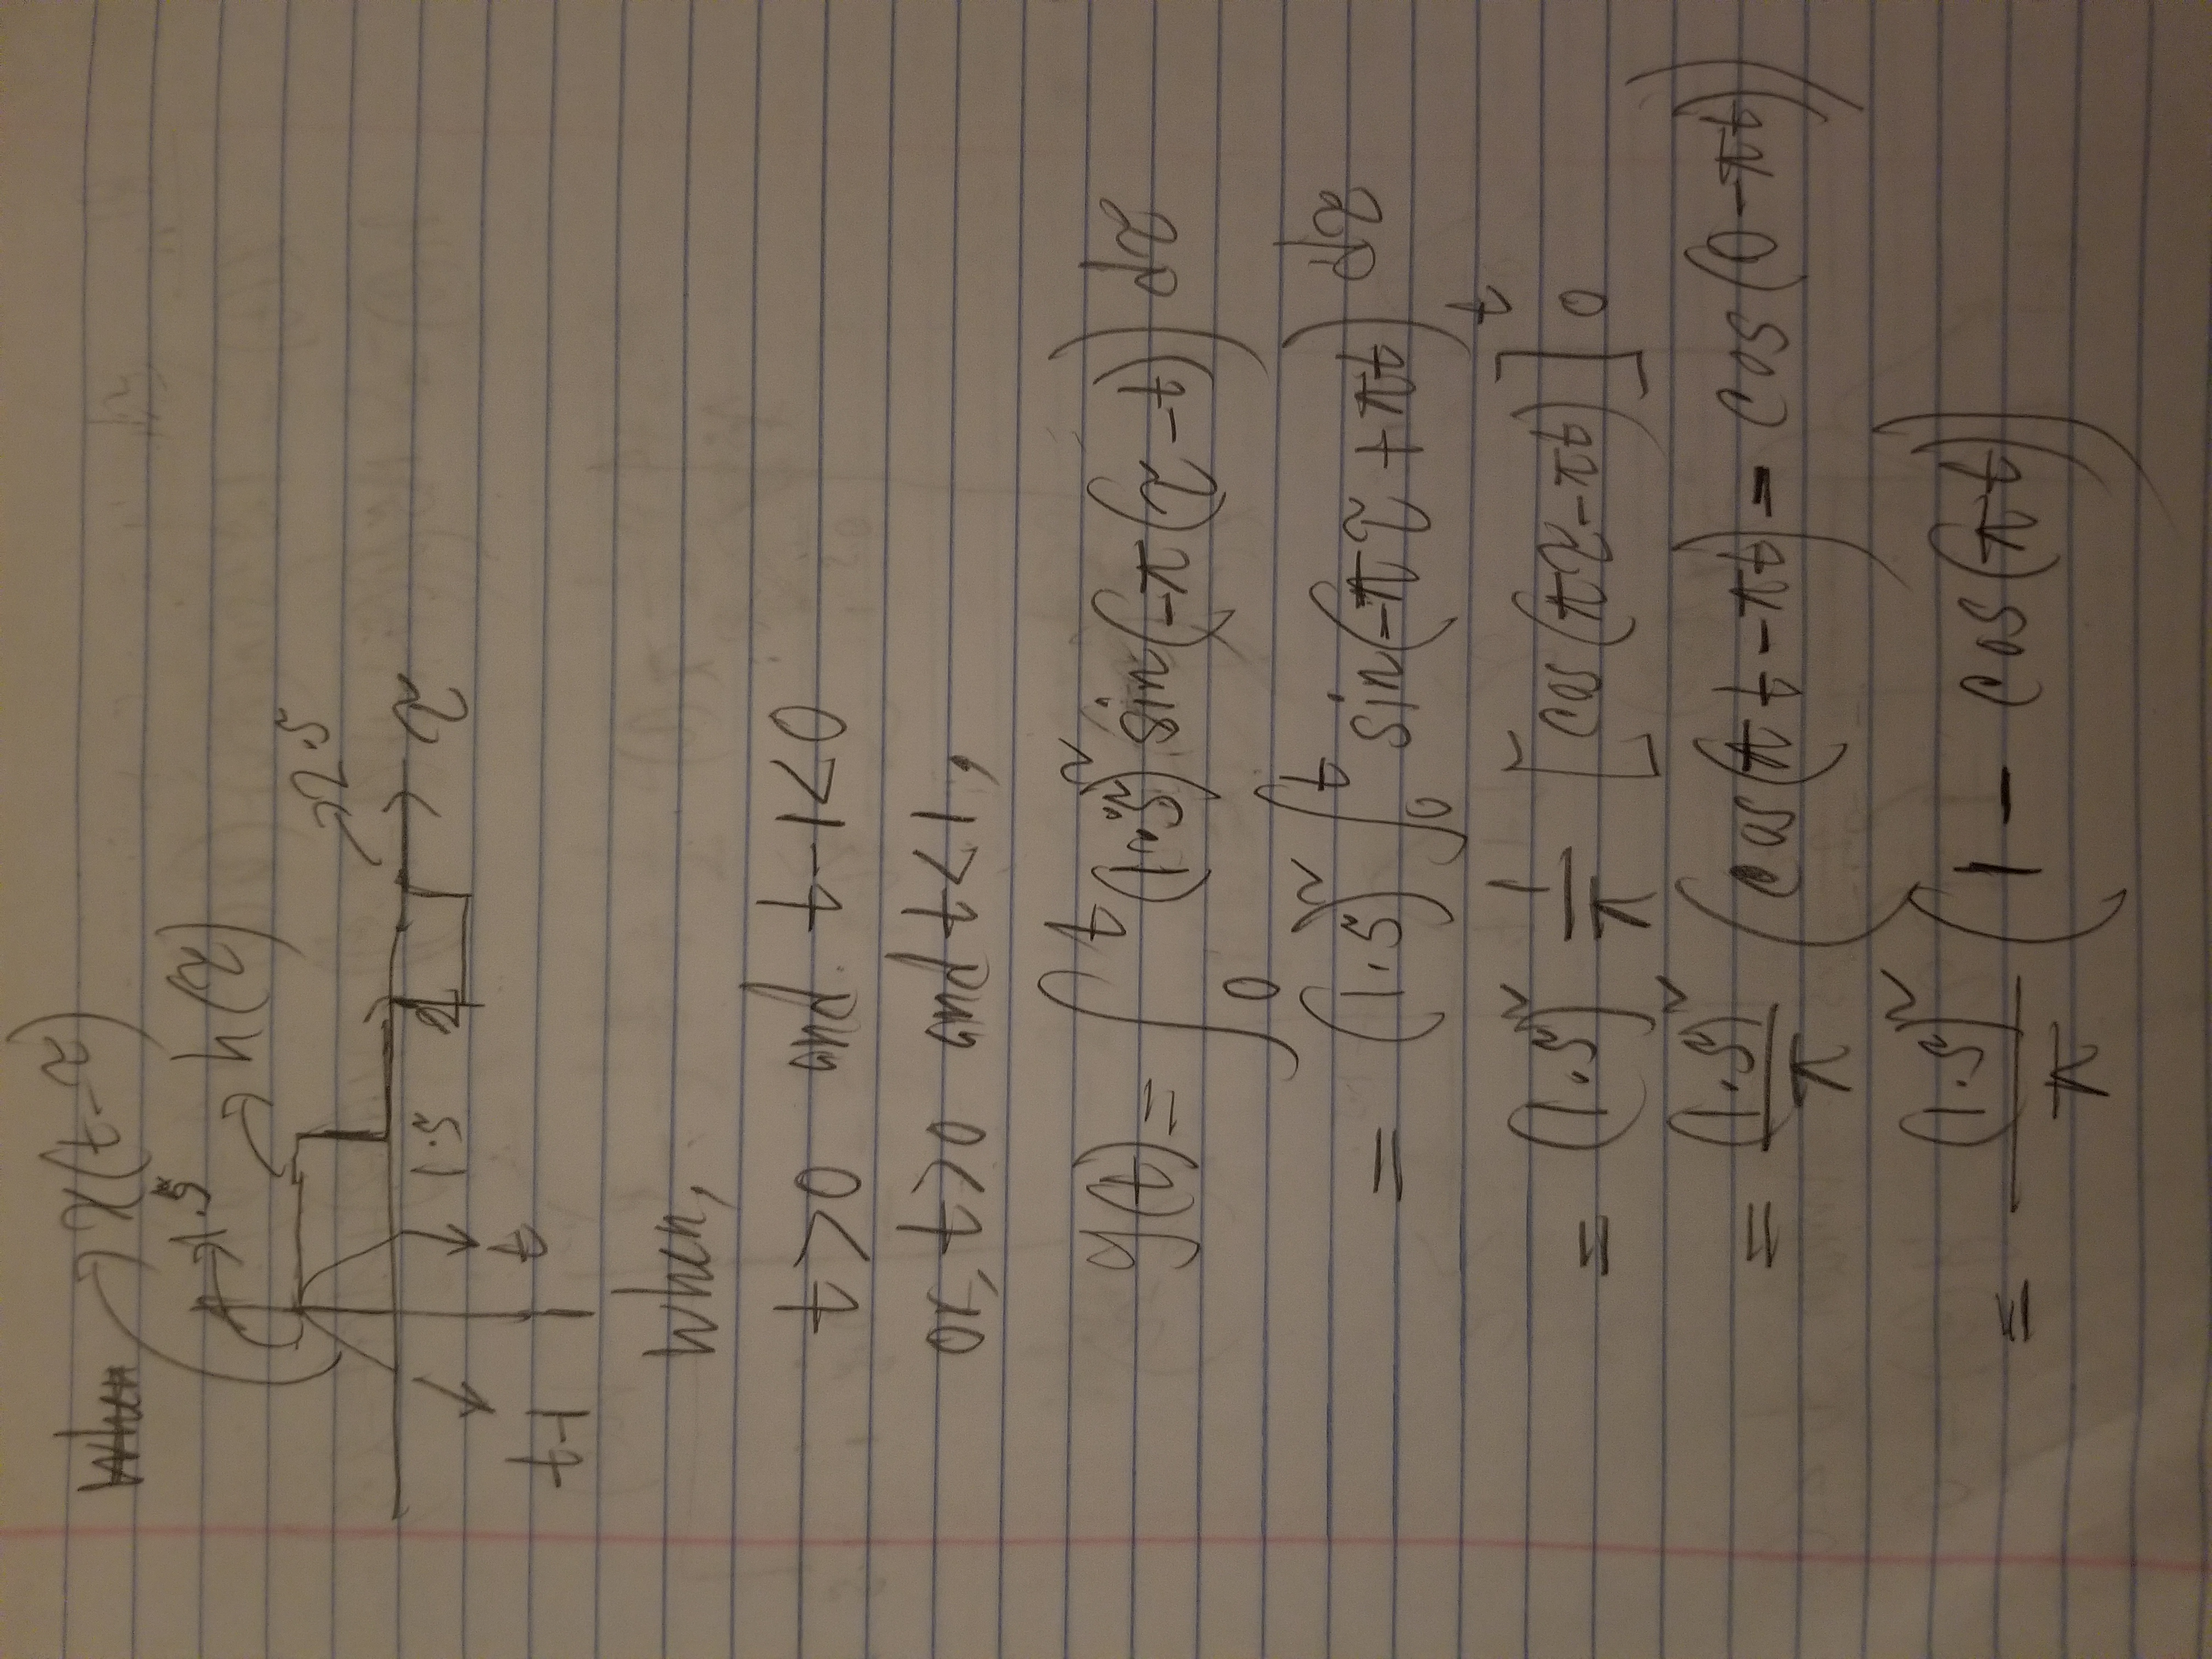 When x(t-τ)
1.5 h(τ)
2.5
1.5 2 τ
t-1 t
When,
t>0 and t-1<0
or, t>0 and t<1,
y(t)= ∫₀ᵗ (1.5)² sin(-π(τ-t)) dτ
= (1.5)² ∫₀ᵗ sin(-πτ+πt) dτ
= (1.5)² 1/π [cos(πτ-πt)]₀ᵗ
= (1.5)²/π (cos(πt-πt) - cos(0-πt))
= (1.5)²/π (1 - cos(πt))